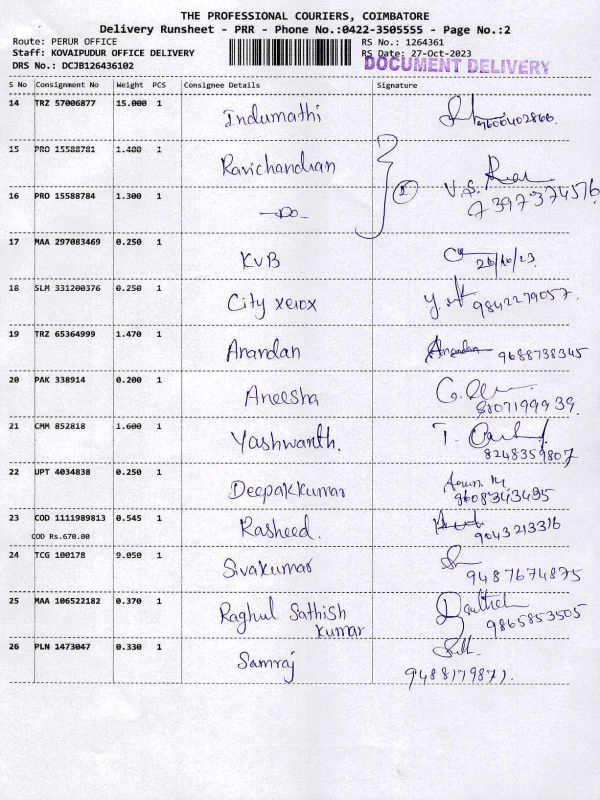 THE PROFESSIONAL COURIERS, COIMBATORE
Delivery Runsheet - PRR - Phone No.:0422-3505555 - Page No.:2
Route: PERUR OFFICE RS No.: 1264361
Staff: KOVAIPUDUR OFFICE DELIVERY RS Date: 27-Oct-2023
DRS No.: DCJB126436102 DOCUMENT DELIVERY
S No Consignment No Weight PCS Consignee Details Signature
14 TRZ 57006877 15.000 1 Indumathi
9600402866.
15 PRO 15588781 1.400 1 Ravichandran
16 PRO 15588784 1.300 1 —Do— 2 V.S.
7397374576
17 MAA 297083469 0.250 1 KVB
18 SLM 331200376 0.250 1 City xerox 9842279057.
19 TRZ 65364999 1.470 1 Anandan Anandan 9688738345
20 PAK 338914 0.200 1 Aneesha
21 CMM 852818 1.600 1 Yashwanth. T.
8248359807
22 UPT 4034838 0.250 1 Deepakkumar Arun M
9608343495
23 COD 1111989813 0.545 1 Rasheed. 9043213316
COD Rs.670.00
24 TCG 100178 9.050 1 Sivakumar
9487674875
25 MAA 106522182 0.370 1 Raghul Sathish
kumar 9865853505
26 PLN 1473047 0.330 1 Samraj
9488179871.